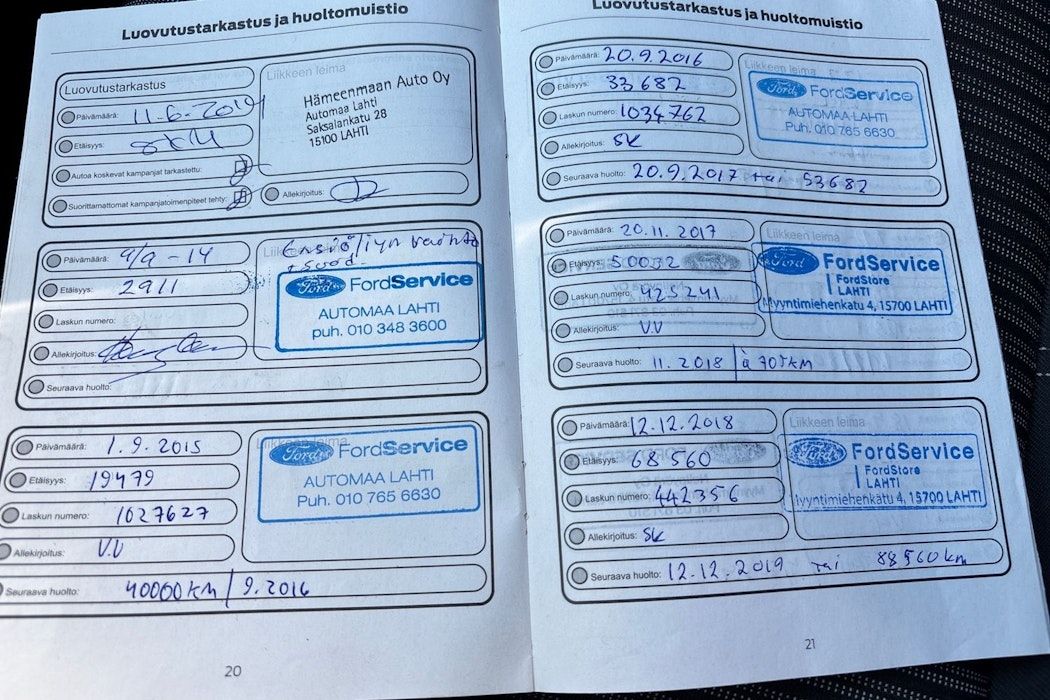 Luovutustarkastus ja huoltomuistio
Luovutustarkastus
Päivämäärä: 11.6.2014
Etäisyys: 8km
Autoa koskevat kampanjat tarkastettu:
Suorittamattomat kampanjatoimenpiteet tehty:
Liikkeen leima
Hämeenmaan Auto Oy
Automaa Lahti
Saksalankatu 28
15100 LAHTI
Allekirjoitus:
Päivämäärä: 9/9 - 14
Etäisyys: 2911
Laskun numero:
Allekirjoitus:
Seuraava huolto:
Liikkeen leima
Ensiöljyn vaihto
Ford FordService
AUTOMAA LAHTI
puh. 010 348 3600
Päivämäärä: 1.9.2015
Etäisyys: 19479
Laskun numero: 1027627
Allekirjoitus: V.V
Seuraava huolto: 40000 KM / 9.2016
Liikkeen leima
Ford FordService
AUTOMAA LAHTI
Puh. 010 765 6630
20
Luovutustarkastus ja huoltomuistio
Päivämäärä: 20.9.2016
Etäisyys: 33682
Laskun numero: 1034762
Allekirjoitus: SK
Seuraava huolto: 20.9.2017 tai 53682
Liikkeen leima
Ford FordService
AUTOMAA LAHTI
Puh. 010 765 6630
Päivämäärä: 20.11.2017
Etäisyys: 50032
Laskun numero: 425241
Allekirjoitus: V.V
Seuraava huolto: 11.2018 / à 70Tkm
Liikkeen leima
Ford FordService
FordStore
LAHTI
Myyntimiehenkatu 4, 15700 LAHTI
Päivämäärä: 12.12.2018
Etäisyys: 68560
Laskun numero: 442356
Allekirjoitus: SK
Seuraava huolto: 12.12.2019 tai 88560 km
Liikkeen leima
Ford FordService
FordStore
LAHTI
Myyntimiehenkatu 4, 15700 LAHTI
21